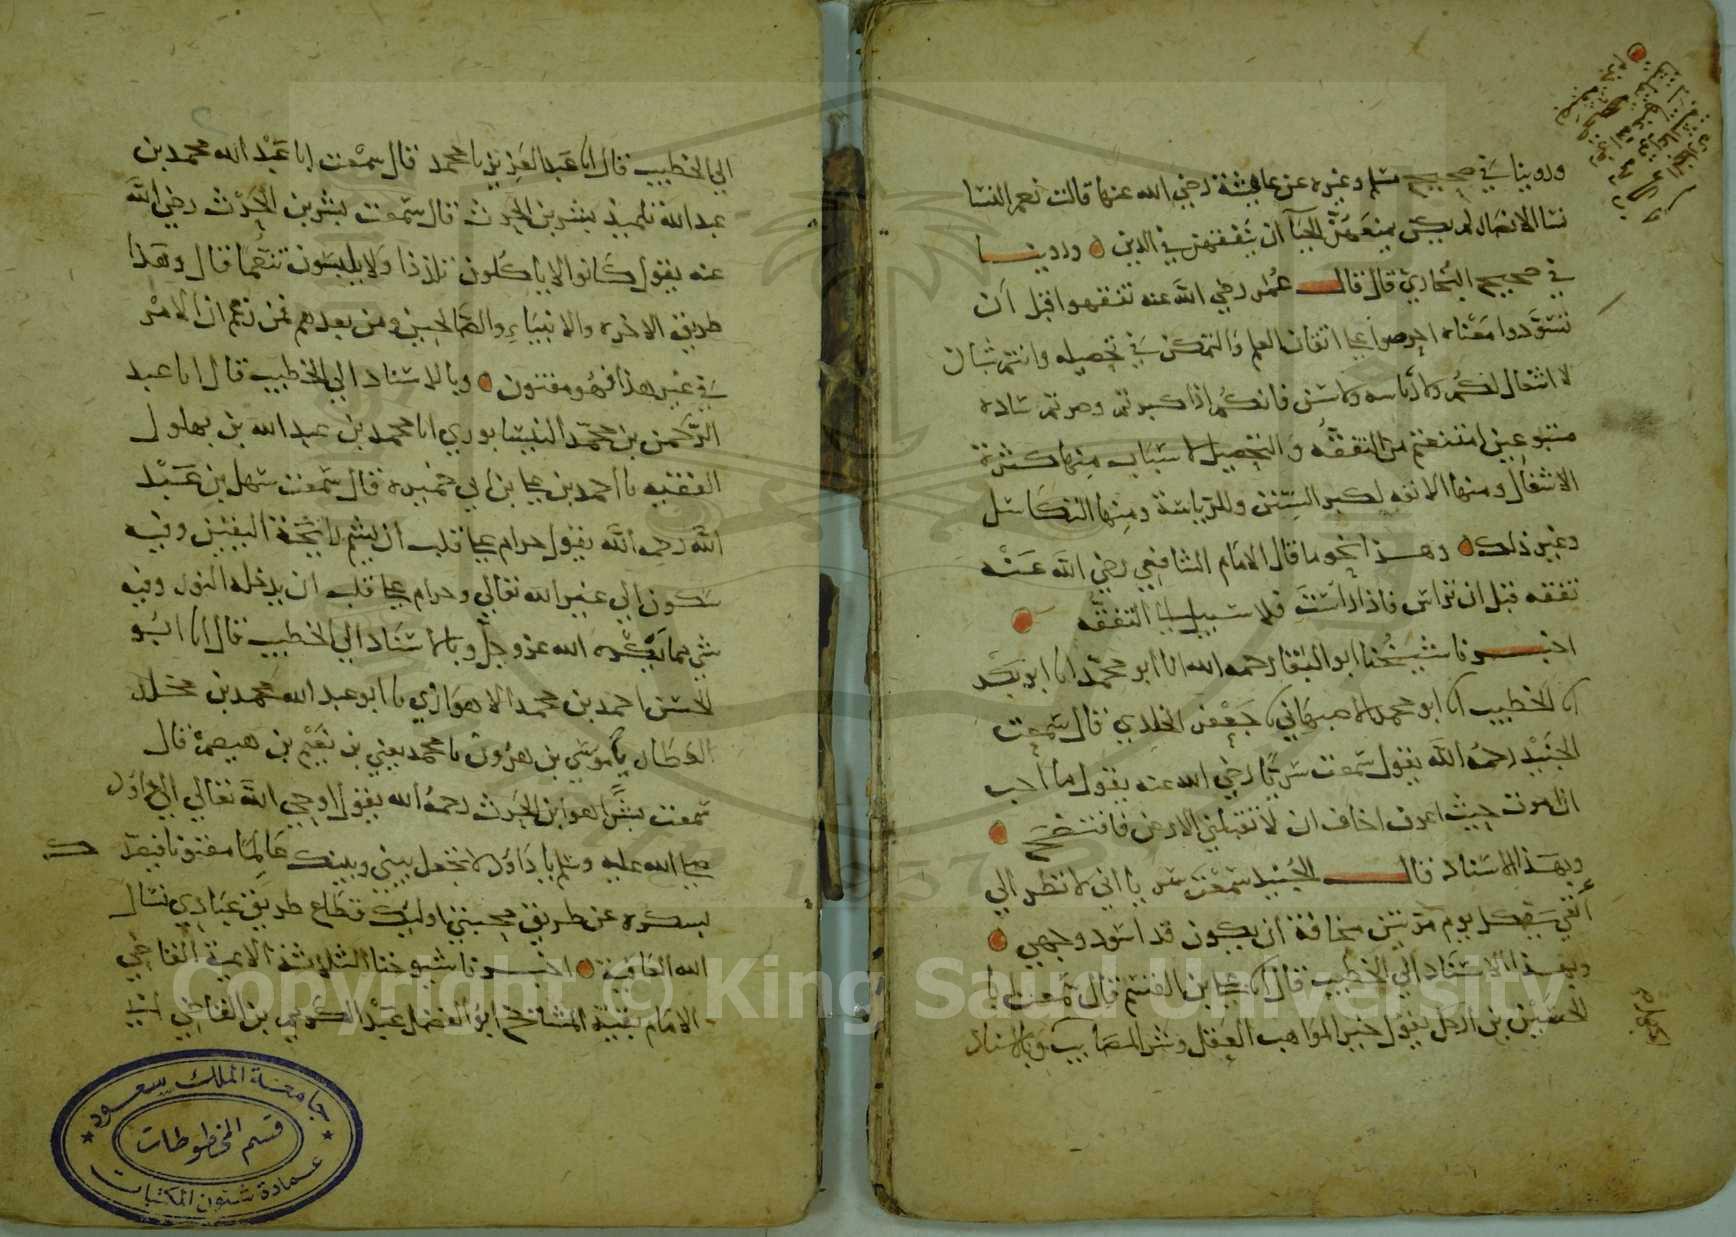 وروينا في صحيح مسلم وغيره عن عايشة رضي الله عنها قالت نعم النسا
نسا الانصار لم يكن يمنعهن الحيآ ان يتفقهن في الدين وروينا
في صحيح البخاري قال قال عمر رضي الله عنه تفقهوا قبل ان
تسودوا معناه احرصوا على اتقان العلم والتمكن في تحصيله وانتم شبان
لا اشغال لكم ولا رياسه ولا سن فانكم اذا كبرتم وصرتم ساده
متبوعين امتنعتم من التفقه والتحصيل لاسباب منها كثرة
الاشغال ومنها الانفه لكبر السن وللرياسة ومنها التكاسل
وغير ذلك وهذا نحو ما قال الامام الشافعي رضي الله عنه
تفقه قبل ان تراس فاذا راست فلا سبيل الى التفقه
اخبرنا شيخنا ابو البقا رحمه الله انا ابو محمد انا ابو بكر
انا الخطيب انا ابو محمد الاصبهاني انا جعفر الخلدي قال سمعت
الجنيد رحمه الله يقول سمعت سريا رضي الله عنه يقول ما احب
ان اموت حيث اعرف اخاف ان لا تقبلني الارض فافتضح
وبهذا الاسناد قال الجنيد سمعت سريا اني لانظر الي
انفي كل يوم مرتين مخافة ان يكون قد اسود وجهي
وبهذا الاسناد الي الخطيب قال انا علي بن القسم قال سمعت ابا
الحسين بن يقول خير المواهب العقل وشر المصايب وبالاسناد
الي الخطيب قال انا عبد العزيز با محمد قال سمعت ابا عبد الله محمد بن
عبد الله تلميذ بشر بن الحرث قال سمعت بشر بن الحرث رضي الله
عنه يقول كانوا لا ياكلون تلذذا ولا يلبسون تنعما قال وهذا
طريق الاخره والانبياء والصالحين ومن بعدهم فمن زعم ان الامر
في غير هذا فهو مفتون وبالاسناد الي الخطيب قال انا عبد
الرحمن بن محمد النيسابوري انا محمد بن عبد الله بن بهلول
الفقيه نا احمد بن علي بن ابي حميره قال سمعت سهل بن عبد
الله رحمه الله يقول حرام على قلب ان يشم رايحة اليقين وفيه
سكون الي غير الله تعالي وحرام على قلب ان يدخله النور وفيه
شي مما يكره الله عز وجل وبالاسناد الي الخطيب قال انا ابو
الحسن احمد بن محمد الاهوازي نا ابو عبد الله محمد بن مخلد
العطار نا موسي بن هرون نا محمد يعني بن نعيم بن هيصم قال
سمعت بشرا هو ابن الحرث رحمه الله يقول اوحي الله تعالي الي داود
صلى الله عليه وسلم يا داود لا تجعل بيني وبينك عالما مفتونا فيصدك
بسكره عن طريق محبتي اوليك قطاع طريق عبادي نسال
الله العافية اخبرنا شيوخنا الثلاثة الايمة القاضي
الامام بقية المشايخ ابو الفضل عبد الكريم بن القاضي
جامعة الملك سعود
قسم المخطوطات
عمادة شئون المكتبات
1957
Copyright © King Saud University